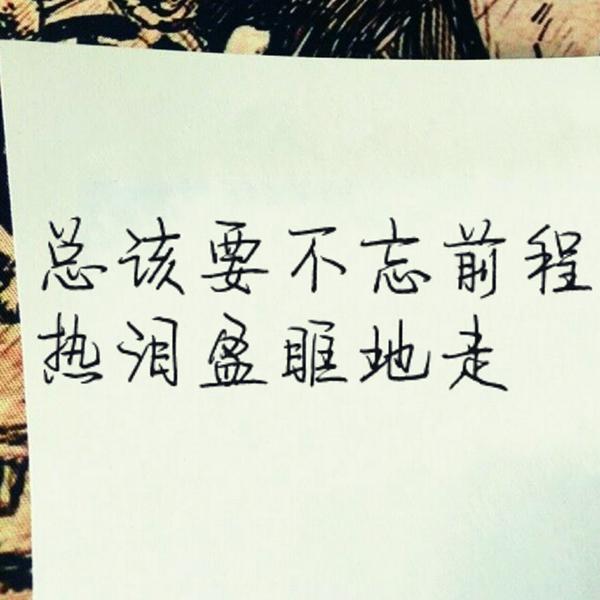 总该要不忘前程
热泪盈眶地走